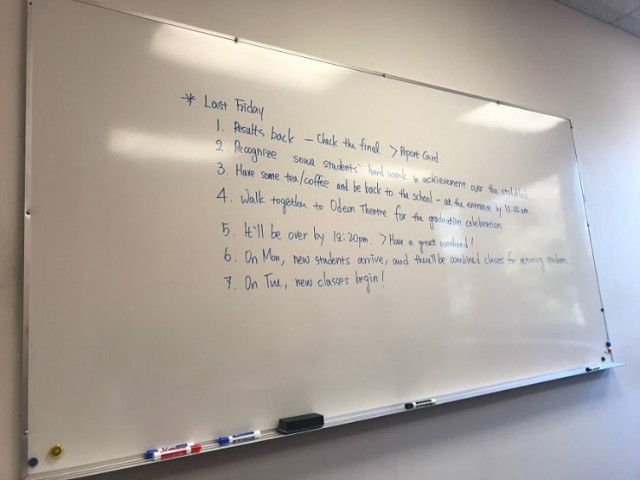 * Last Friday
1. Results back – Check the final > Report Card
2. Recognize some students' hard work & achievement over the
3. Have some tea/coffee and be back to the school – at the entrance by
4. Walk together to Odeon Theatre for the graduation celebration
5. It'll be over by 12:30pm. > Have a great weekend!
6. On Mon, new students arrive, and there'll be combined classes for returning students
7. On Tue, new classes begin!